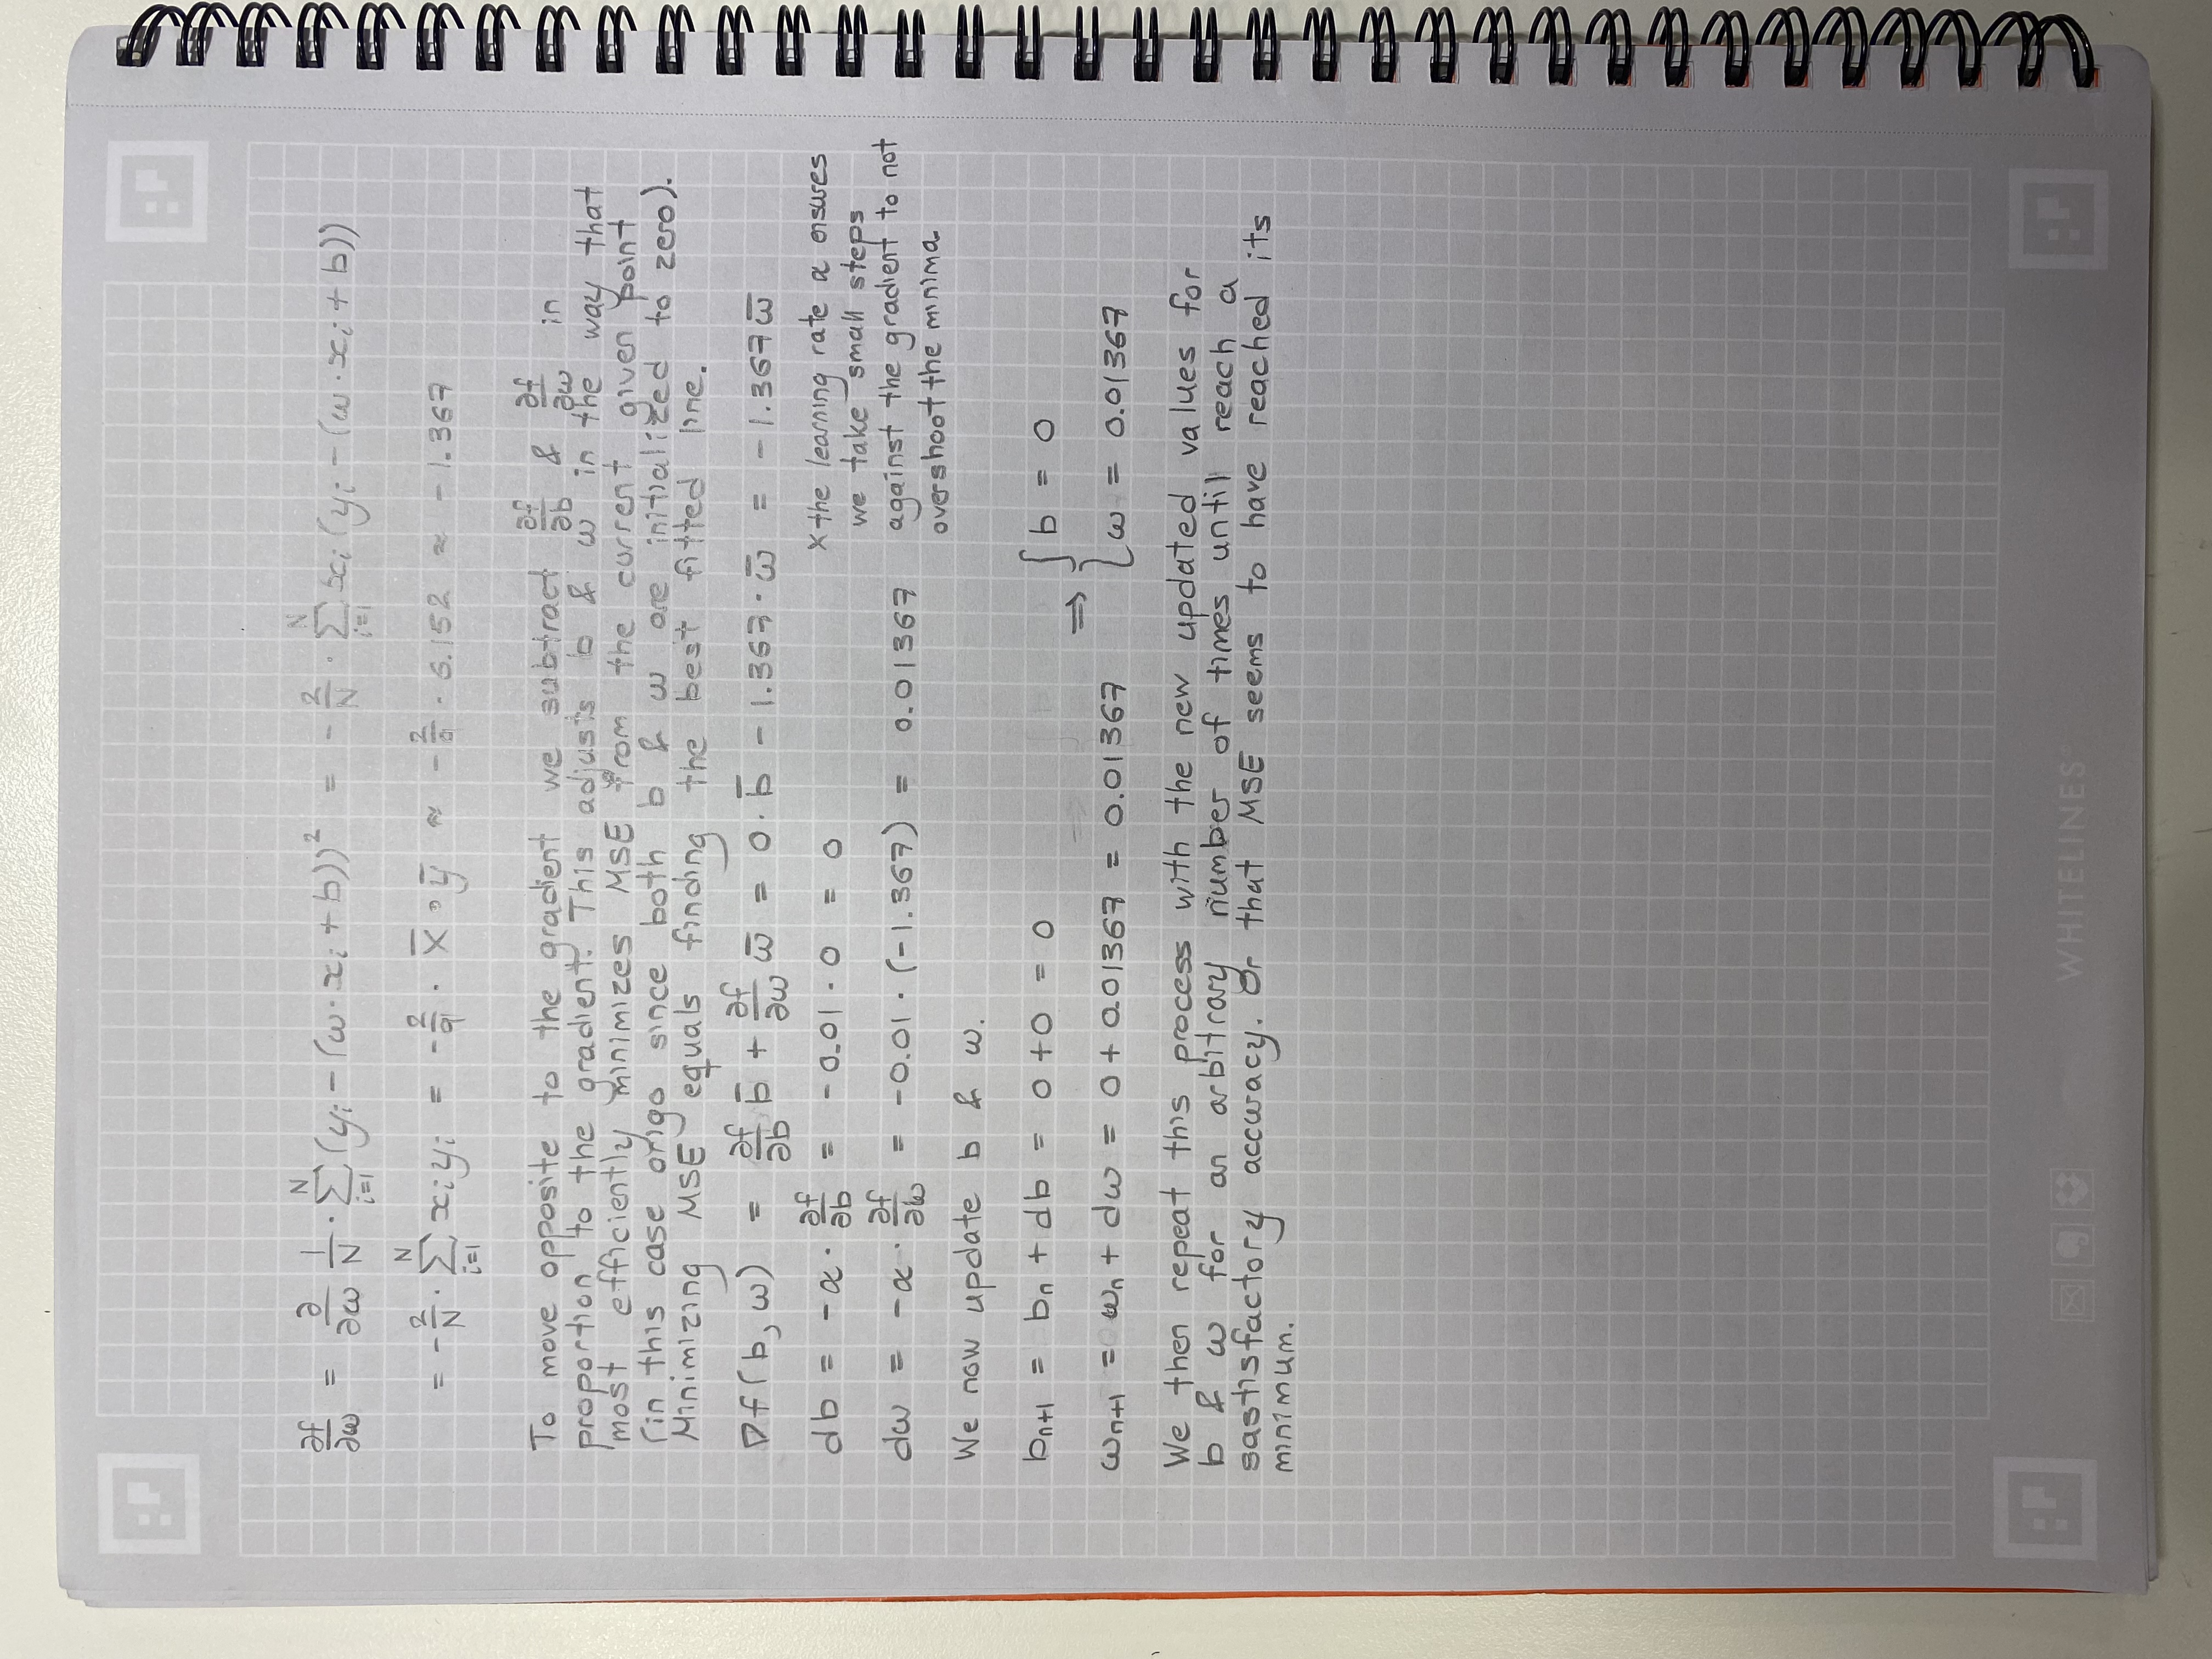 ∂f/∂ω = ∂/∂ω 1/N · Σ_{i=1}^{N} (y_i − (ω · x_i + b))² = − 2/N · Σ_{i=1}^{N} x_i (y_i − (ω · x_i + b))
= − 2/N · Σ_{i=1}^{N} x_i y_i = − 2/9 · x̄ ∘ ȳ ≈ − 2/9 · 6.152 ≈ − 1.367
To move opposite to the gradient we subtract ∂f/∂b & ∂f/∂ω in
proportion to the gradient. This adjusts b & ω in the way that
most efficiently minimizes MSE from the current given point
(in this case origo since both b & ω are initialized to zero).
Minimizing MSE equals finding the best fitted line.
∇f(b, ω) = ∂f/∂b b̄ + ∂f/∂ω ω̄ = 0 · b̄ − 1.367 · ω̄ = − 1.367 ω̄
db = −α · ∂f/∂b = −0.01 · 0 = 0
dω = −α · ∂f/∂ω = −0.01 · (−1.367) = 0.01367
× the learning rate α ensures
we take small steps
against the gradient to not
overshoot the minima
We now update b & ω.
b_{n+1} = b_n + db = 0 + 0 = 0
ω_{n+1} = ω_n + dω = 0 + 0.01367 = 0.01367
⇒ { b = 0
ω = 0.01367
We then repeat this process with the new updated values for
b & ω for an arbitrary number of times until reach a
sastisfactory accuracy. Or that MSE seems to have reached its
minimum.
WHITELINES